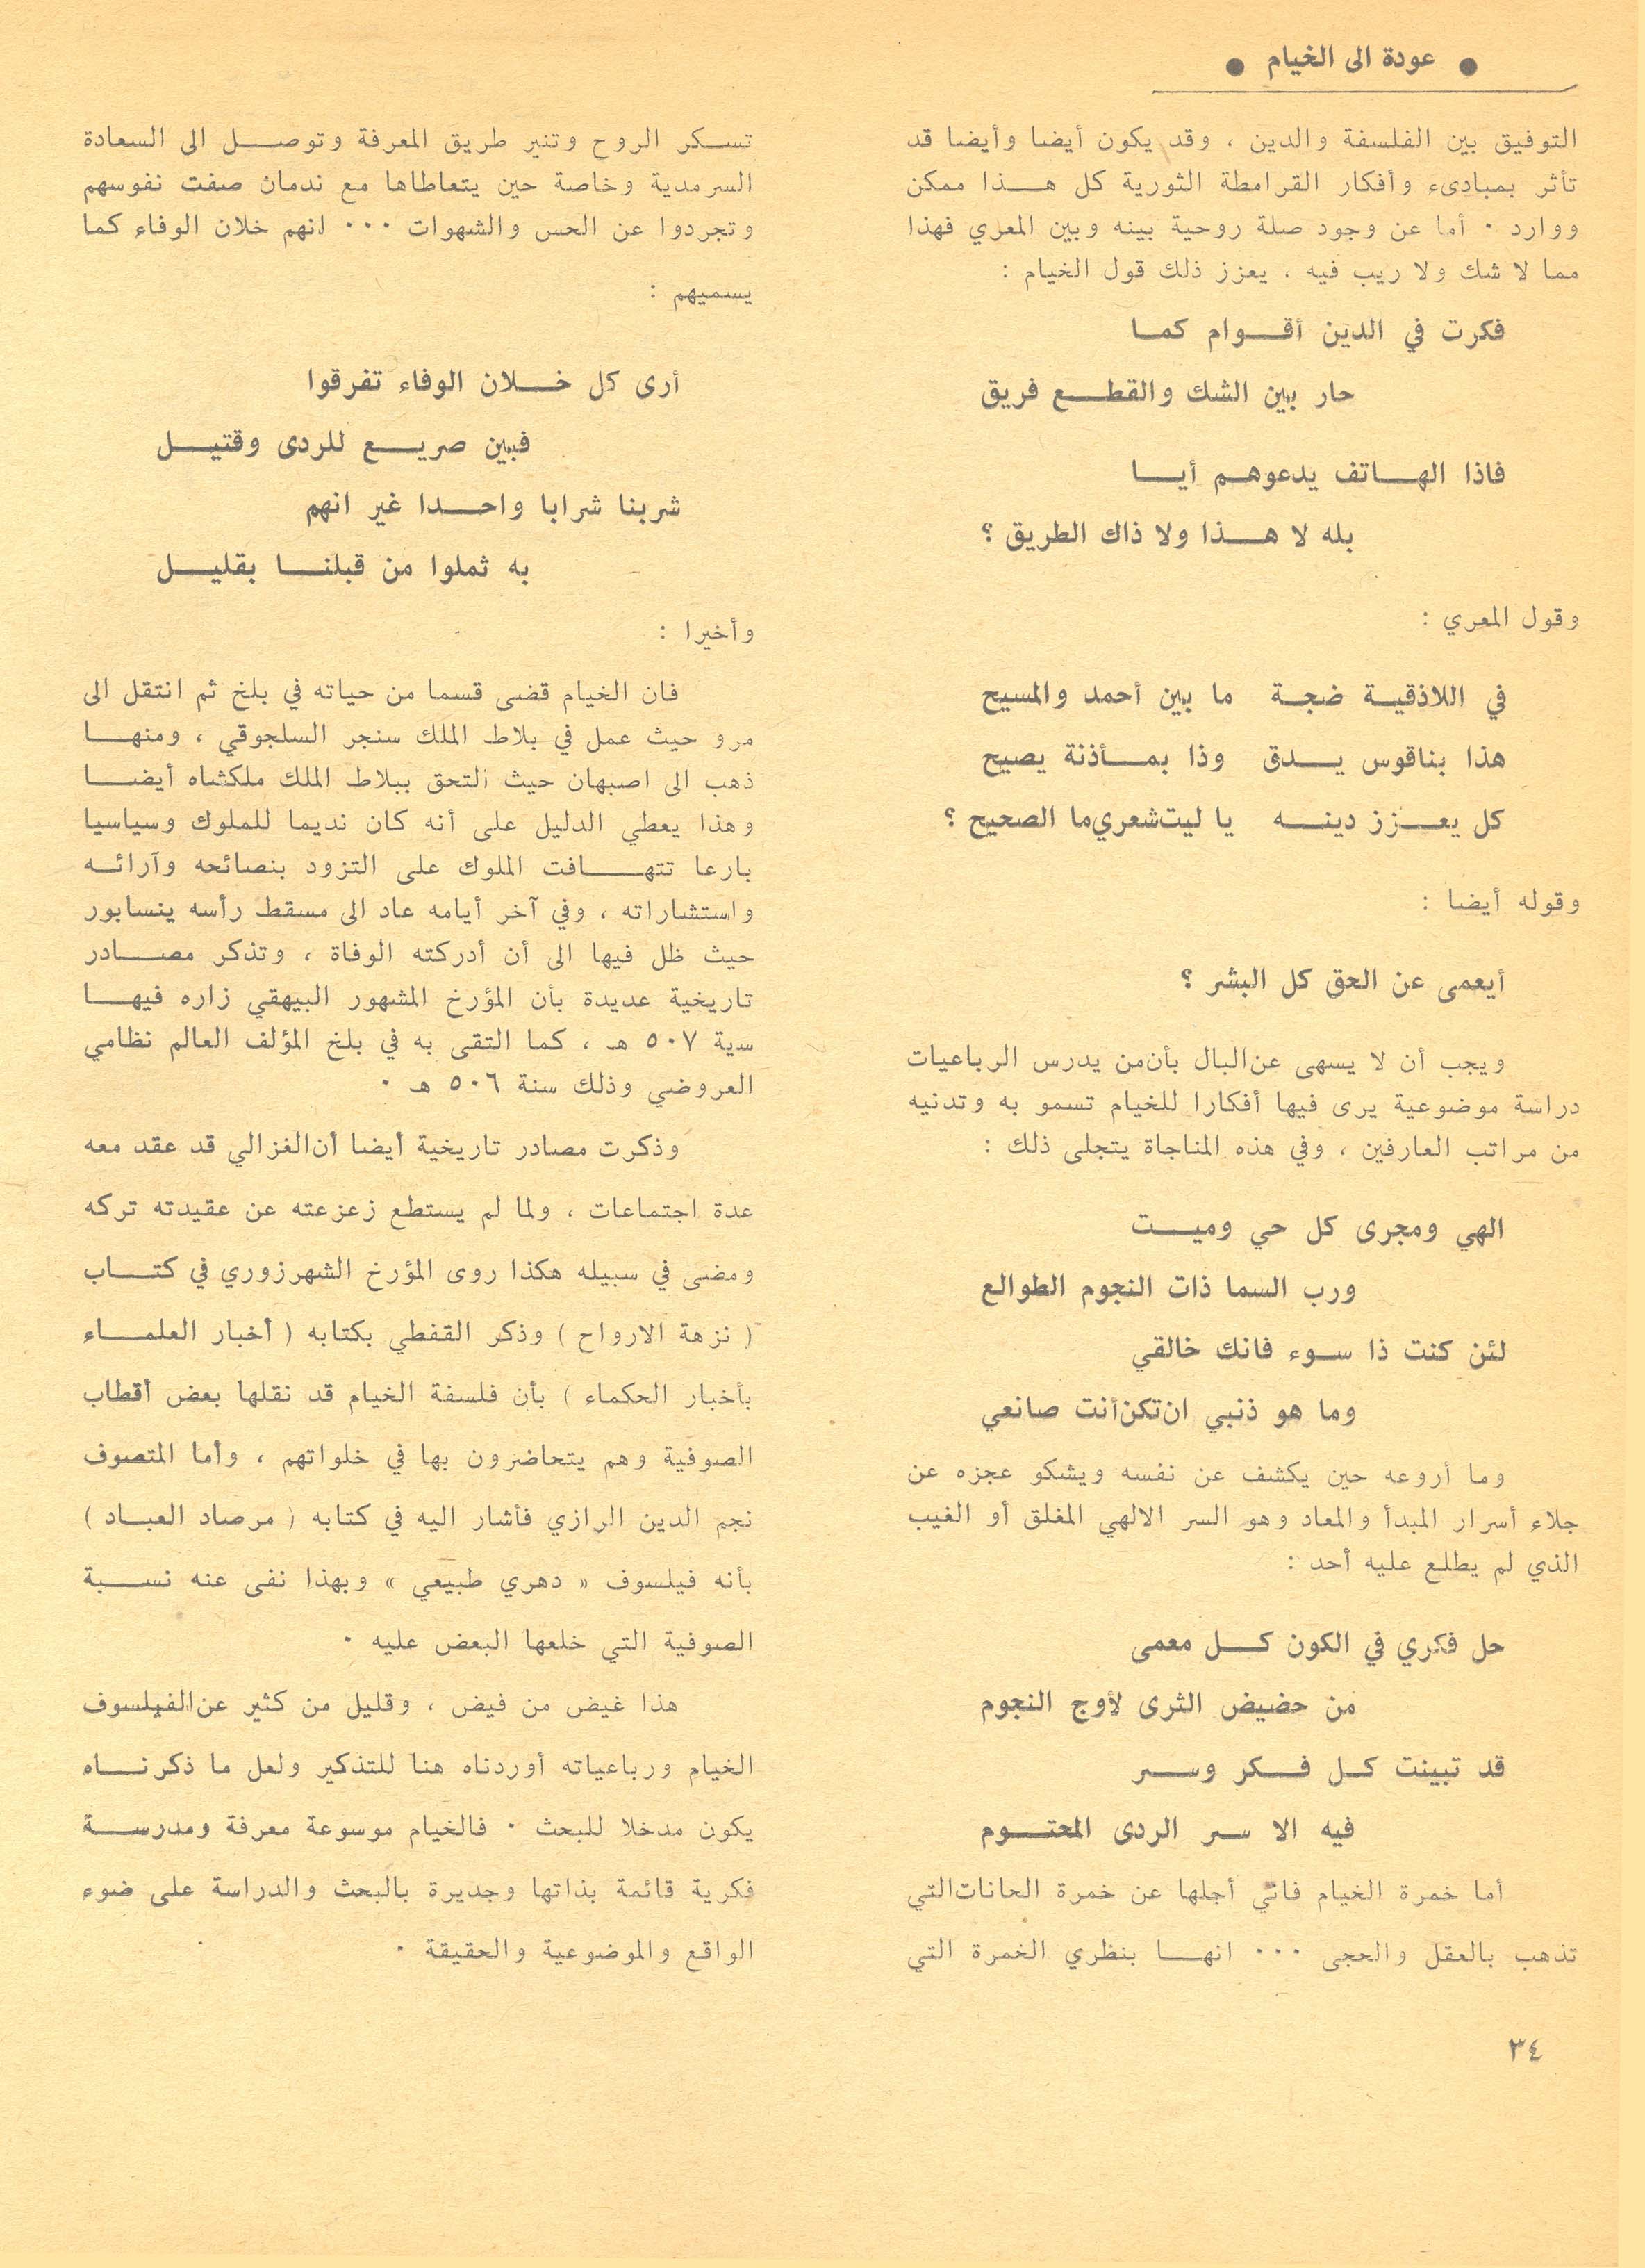 ● عودة الى الخيام ●
التوفيق بين الفلسفة والدين ، وقد يكون أيضا وأيضا قد
تأثر بمبادىء وأفكار القرامطة الثورية كل هذا ممكن
ووارد . أما عن وجود صلة روحية بينه وبين المعري فهذا
مما لا شك ولا ريب فيه ، يعزز ذلك قول الخيام :
فكرت في الدين أقوام كما
حار بين الشك والقطع فريق
فاذا الهاتف يدعوهم أيا
بله لا هذا ولا ذاك الطريق ؟
وقول المعري :
في اللاذقية ضجة ما بين أحمد والمسيح
هذا بناقوس يدق وذا بمأذنة يصيح
كل يعزز دينه يا ليت شعري ما الصحيح ؟
وقوله أيضا :
أيعمى عن الحق كل البشر ؟
ويجب أن لا يسهى عن البال بأن من يدرس الرباعيات
دراسة موضوعية يرى فيها أفكارا للخيام تسمو به وتدنيه
من مراتب العارفين ، وفي هذه المناجاة يتجلى ذلك :
الهي ومجرى كل حي وميت
ورب السما ذات النجوم الطوالع
لئن كنت ذا سوء فانك خالقي
وما هو ذنبي ان تكن أنت صانعي
وما أروعه حين يكشف عن نفسه ويشكو عجزه عن
جلاء أسرار المبدأ والمعاد وهو السر الالهي المغلق أو الغيب
الذي لم يطلع عليه أحد :
حل فكري في الكون كل معمى
من حضيض الثرى لأوج النجوم
قد تبينت كل فكر وسر
فيه الا سر الردى المحتوم
أما خمرة الخيام فاني أجلها عن خمرة الحانات التي
تذهب بالعقل والحجى ... انها بنظري الخمرة التي
تسكر الروح وتنير طريق المعرفة وتوصل الى السعادة
السرمدية وخاصة حين يتعاطاها مع ندمان صفت نفوسهم
وتجردوا عن الحس والشهوات ... انهم خلان الوفاء كما
يسميهم :
أرى كل خلان الوفاء تفرقوا
فبين صريع للردى وقتيل
شربنا شرابا واحدا غير انهم
به ثملوا من قبلنا بقليل
وأخيرا :
فان الخيام قضى قسما من حياته في بلخ ثم انتقل الى
مرو حيث عمل في بلاط الملك سنجر السلجوقي ، ومنها
ذهب الى اصبهان حيث التحق ببلاط الملك ملكشاه أيضا
وهذا يعطي الدليل على أنه كان نديما للملوك وسياسيا
بارعا تتهافت الملوك على التزود بنصائحه وآرائه
واستشاراته ، وفي آخر أيامه عاد الى مسقط رأسه ينسابور
حيث ظل فيها الى أن أدركته الوفاة ، وتذكر مصادر
تاريخية عديدة بأن المؤرخ المشهور البيهقي زاره فيها
سية ٥٠٧ هـ ، كما التقى به في بلخ المؤلف العالم نظامي
العروضي وذلك سنة ٥٠٦ هـ .
وذكرت مصادر تاريخية أيضا أن الغزالي قد عقد معه
عدة اجتماعات ، ولما لم يستطع زعزعته عن عقيدته تركه
ومضى في سبيله هكذا روى المؤرخ الشهرزوري في كتاب
( نزهة الارواح ) وذكر القفطي بكتابه ( أخبار العلماء
بأخبار الحكماء ) بأن فلسفة الخيام قد نقلها بعض أقطاب
الصوفية وهم يتحاضرون بها في خلواتهم ، وأما المتصوف
نجم الدين الرازي فأشار اليه في كتابه ( مرصاد العباد )
بأنه فيلسوف « دهري طبيعي » وبهذا نفى عنه نسبة
الصوفية التي خلعها البعض عليه .
هذا غيض من فيض ، وقليل من كثير عن الفيلسوف
الخيام ورباعياته أوردناه هنا للتذكير ولعل ما ذكرناه
يكون مدخلا للبحث . فالخيام موسوعة معرفة ومدرسة
فكرية قائمة بذاتها وجديرة بالبحث والدراسة على ضوء
الواقع والموضوعية والحقيقة .
٣٤